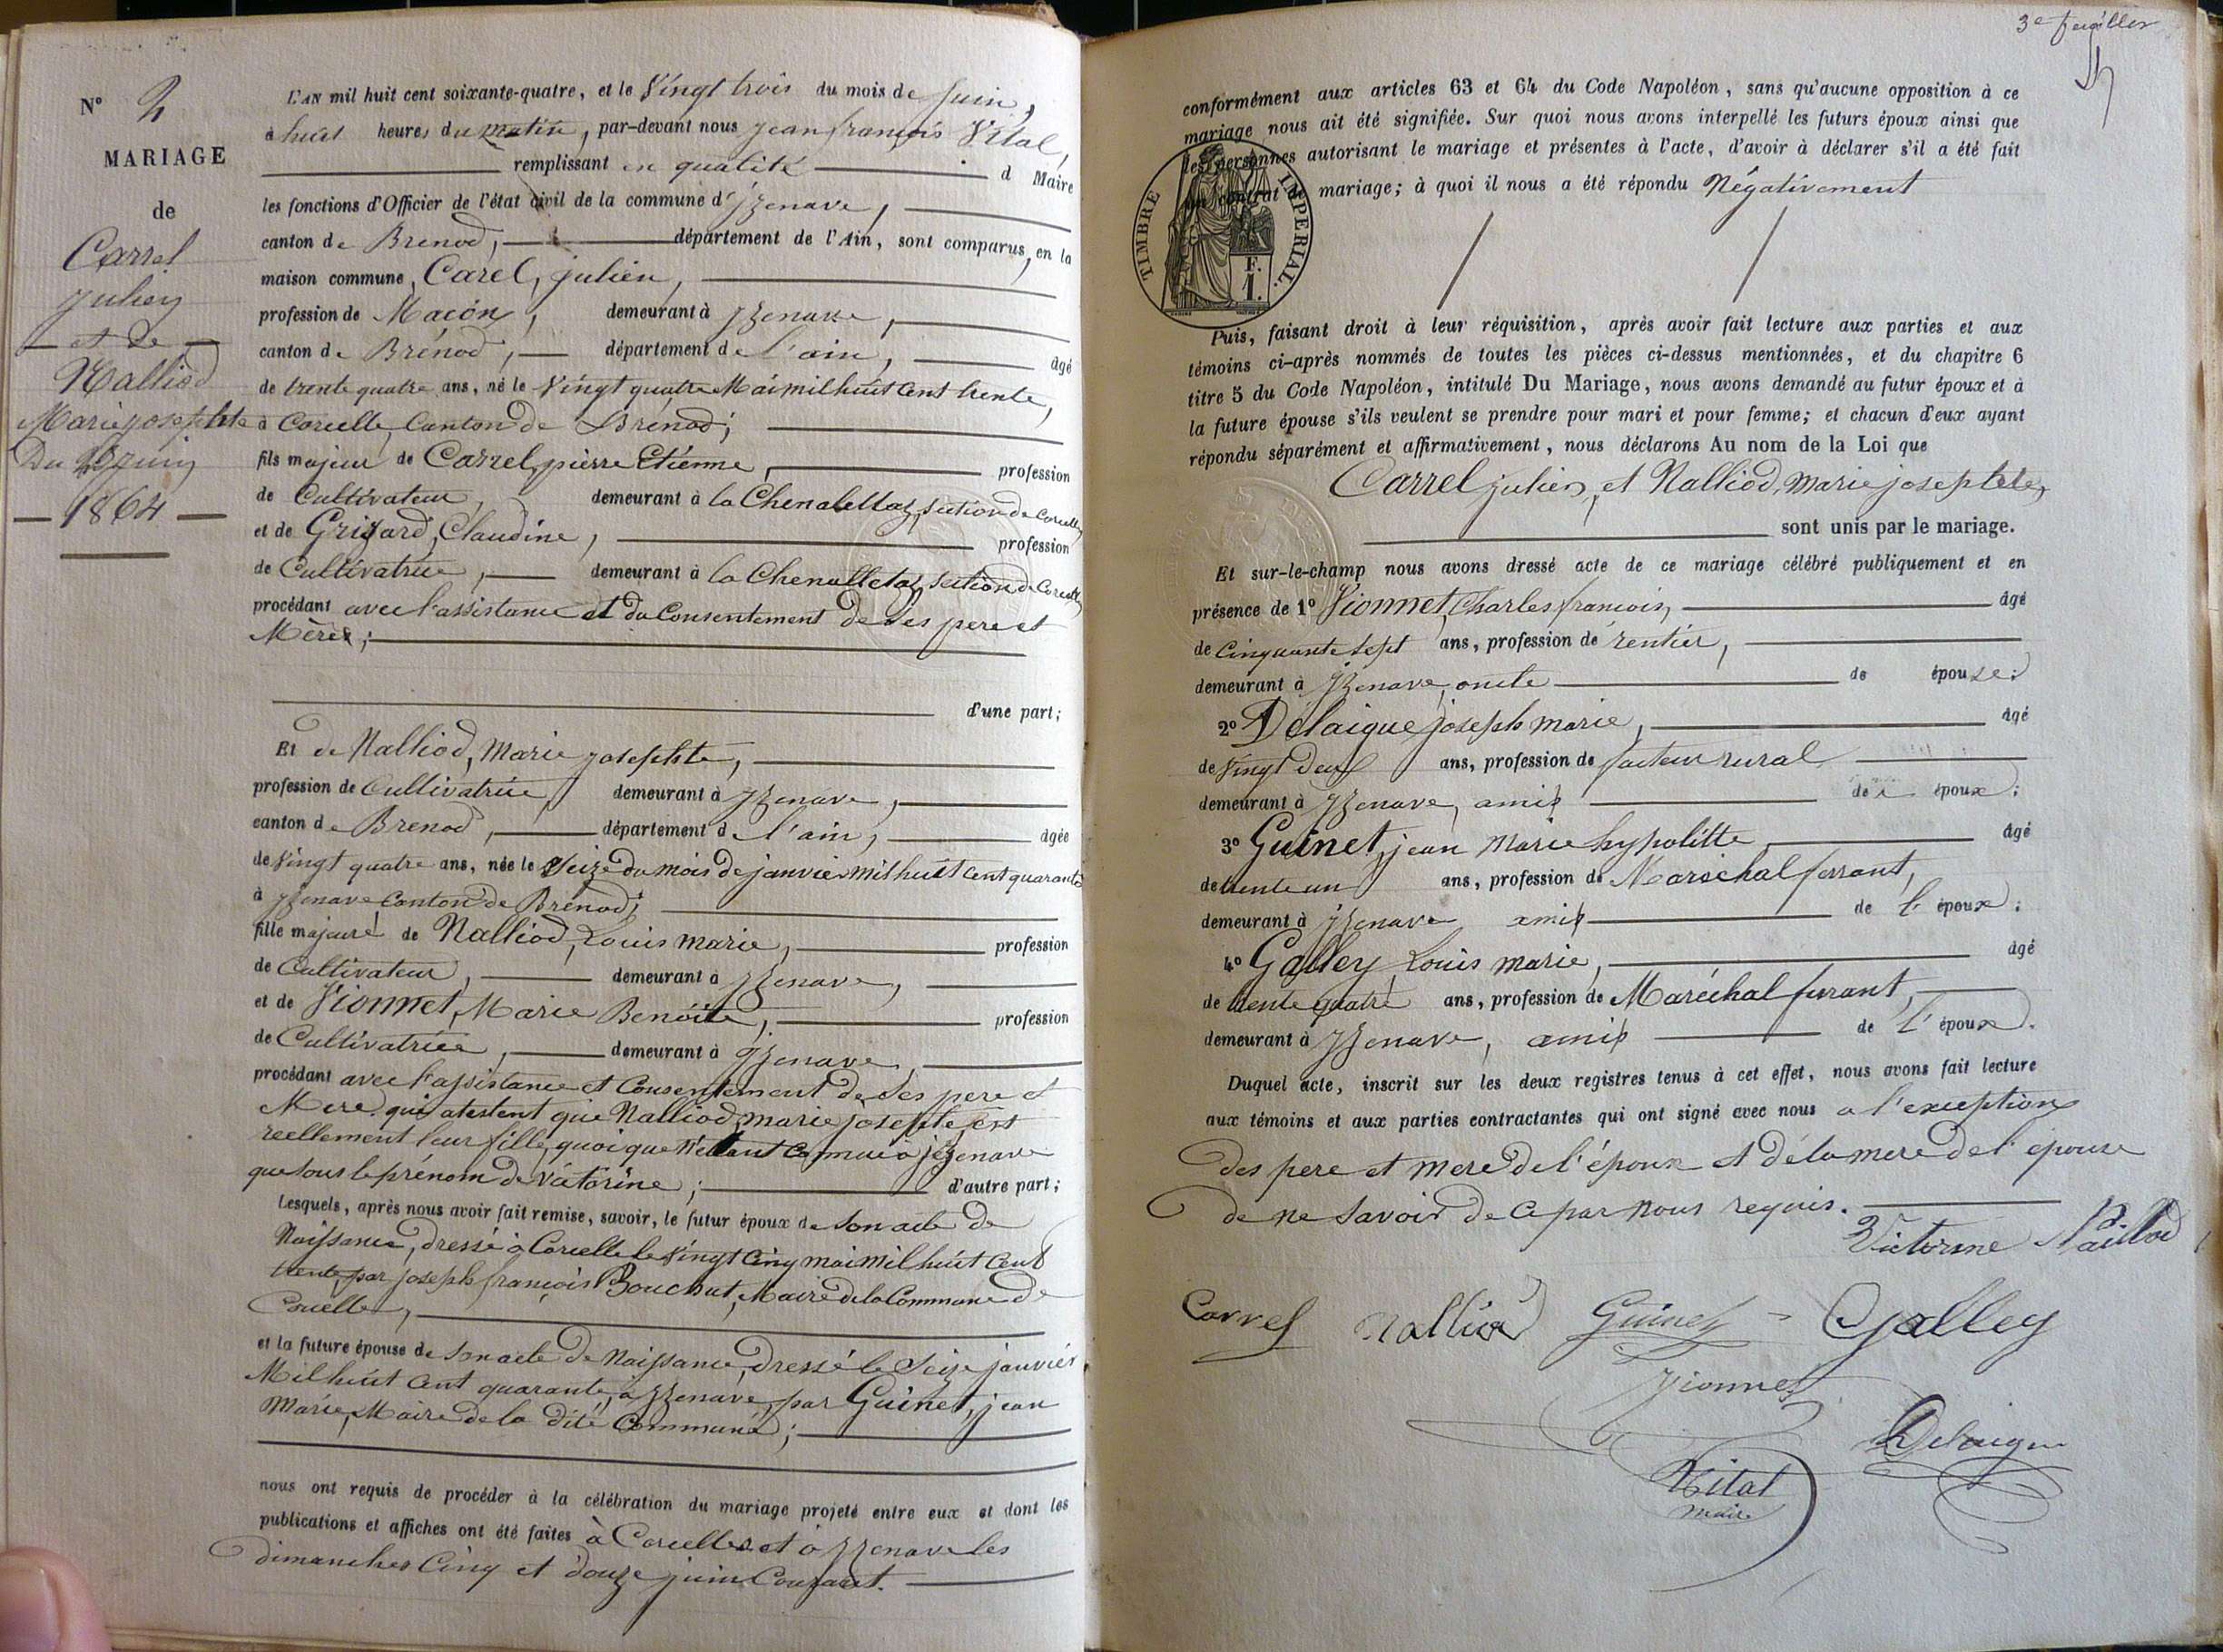 N° 2
MARIAGE
de
Carrel
Julien
et de
Nalliod
Marie josephte
Du 23 juin
1864
L'AN mil huit cent soixante-quatre, et le Vingt trois du mois de juin,
à huit heures du matin, par-devant nous jean françois Vital,
remplissant en qualité d Maire
les fonctions d'Officier de l'état civil de la commune d'Izenave,
canton de Brenod, département de l'Ain, sont comparus, en la
maison commune, Carel, julien,
profession de Maçon, demeurant à Izenave,
canton de Brénod, département de l'ain, âgé
de trente quatre ans, né le Vingt quatre Mai mil huit cent trente,
à Corcelle, Canton de Brénod;
fils majeur de Carrel, pierre Etienne, profession
de Cultivateur, demeurant à la Chenalettaz, section de Corcelle
et de Grisard, Claudine, profession
de Cultivatrice, demeurant à la Chenalletaz, section de Corcelle
procédant avec l'assistance et du Consentement de ses pere et
Mère;
d'une part;
Et de Nalliod, Marie josephte,
profession de Cultivatrice demeurant à Izenave,
canton de Brenod, département de l'ain, âgée
de Vingt quatre ans, née le Seize du mois de janvier mil huit Cent quarante
à Izenave Canton de Brénod;
fille majeure de Nalliod, Louis marie, profession
de Cultivateur, demeurant à Izenave,
et de Vionnet, Marie Benoite, profession
de Cultivatrice, demeurant à Izenave,
procédant avec l'assistance et Consentement de ses pere et
Mere. qui atestent que Nalliod, marie josephte, est
reellement leur fille, quoique n'étant Connue à jzenave
que sous le prénom de Victorine; d'autre part;
Lesquels, après nous avoir fait remise, savoir, le futur époux de son acte de
Naissance, dressé à Corcelle le Vingt Cinq mai mil huit Cent
trente par joseph françois Bouchut, Maire de la Commune de
Corcelle,
et la future épouse de son acte de Naissance, dressé le Seize janvier
Mil huit cent quarante, à Izenave, par Guinet, jean
Marie, Maire de la dité Commune;
nous ont requis de procéder à la célébration du mariage projeté entre eux et dont les
publications et affiches ont été faites à Corcelles et à Izenave les
dimanches Cinq et douze juin Courant.
3e feuillet
conformément aux articles 63 et 64 du Code Napoléon, sans qu'aucune opposition à ce
mariage nous ait été signifiée. Sur quoi nous avons interpellé les futurs époux ainsi que
les personnes autorisant le mariage et présentes à l'acte, d'avoir à déclarer s'il a été fait
un contrat de mariage; à quoi il nous a été répondu Négativement
TIMBRE IMPERIAL.
F.
1.
Puis, faisant droit à leur réquisition, après avoir fait lecture aux parties et aux
témoins ci-après nommés de toutes les pièces ci-dessus mentionnées, et du chapitre 6
titre 5 du Code Napoléon, intitulé Du Mariage, nous avons demandé au futur époux et à
la future épouse s'ils veulent se prendre pour mari et pour femme; et chacun d'eux ayant
répondu séparément et affirmativement, nous déclarons Au nom de la Loi que
Carrel julien, et Nalliod, marie josephte,
sont unis par le mariage.
Et sur-le-champ nous avons dressé acte de ce mariage célébré publiquement et en
présence de 1° Vionnet, Charles francois, âgé
de Cinquante sept ans, profession de rentier,
demeurant à Izenave, oncle de épouse;
2° Delaigue joseph marie, âgé
de Vingt deux ans, profession de facteur rural
demeurant à Izenave, ami de époux;
3° Guinet, jean Marie hypolitte âgé
de trente un ans, profession de Maréchal ferrant,
demeurant à Izenave ami de l' époux;
4° Galley Louis marie, âgé
de trente quatre ans, profession de Maréchal ferrant,
demeurant à Izenave, ami de l' époux.
Duquel acte, inscrit sur les deux registres tenus à cet effet, nous avons fait lecture
aux témoins et aux parties contractantes qui ont signé avec nous a l'exception
des pere et mere de l'époux et de la mere de l'épouse
de ne savoir de ce par nous requis.
Victorine Nalliod
Carrel Nalliod Guinet Galley
Vionnet
Delaigue
Vital
maire